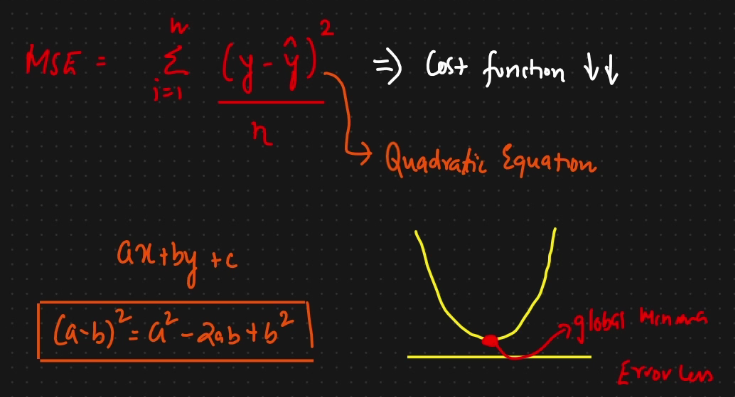 MSE = n Σ i=1 (y - ŷ)² / n ⇒ Cost function ↓↓
→ Quadratic Equation
ax+by+c
(a-b)² = a² - 2ab + b²
→ global Minima
Error Less